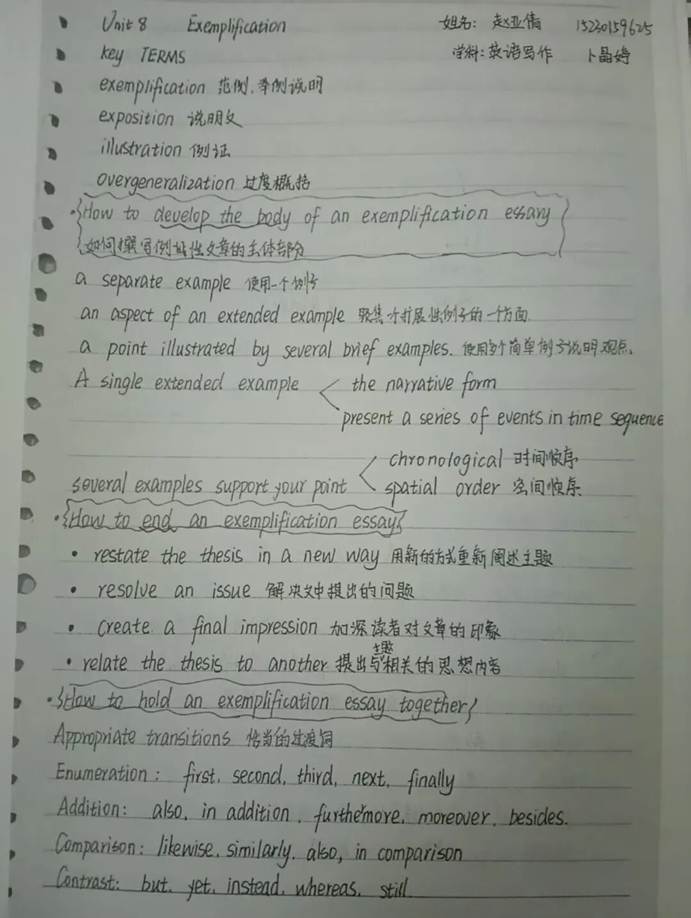 Unit 8 Exemplification 姓名: 赵亚倩 15230159625
key TERMS 学科: 英语写作 卜晶婷
exemplification 范例, 举例说明
exposition 说明文
illustration 例证
overgeneralization 过度概括
·{How to develop the body of an exemplification essary}
{如何撰写例证性文章的主体部分
a separate example 使用一个例子
an aspect of an extended example 聚焦于扩展性例子的一个方面
a point illustrated by several brief examples. 使用多个简单例子说明观点.
A single extended example < the narrative form
present a series of events in time sequence
chronological 时间顺序
several examples support your point < spatial order 空间顺序
·{How to end an exemplification essay}
• restate the thesis in a new way 用新的方式重新阐述主题
• resolve an issue 解决文中提出的问题
• create a final impression 加深读者对文章的印象
• relate the thesis to another 提出与主题相关的思想内容
·{How to hold an exemplification essay together}
Appropriate transitions 恰当的过渡词
Enumeration: first, second, third, next, finally
Addition: also, in addition, furthermore, moreover, besides.
Comparison: likewise, similarly, also, in comparison
Contrast: but, yet, instead, whereas, still